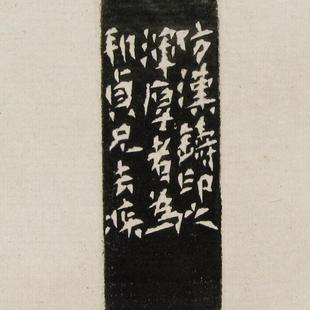 仿漢鑄印之
渾厚者為
利貞兄去疾